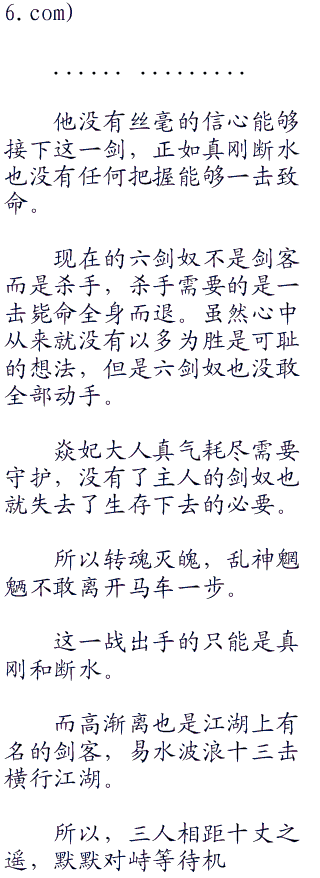 6.com)
...... .........
他没有丝毫的信心能够
接下这一剑，正如真刚断水
也没有任何把握能够一击致
命。
现在的六剑奴不是剑客
而是杀手，杀手需要的是一
击毙命全身而退。虽然心中
从来就没有以多为胜是可耻
的想法，但是六剑奴也没敢
全部动手。
焱妃大人真气耗尽需要
守护，没有了主人的剑奴也
就失去了生存下去的必要。
所以转魂灭魄，乱神魍
魉不敢离开马车一步。
这一战出手的只能是真
刚和断水。
而高渐离也是江湖上有
名的剑客，易水波浪十三击
横行江湖。
所以，三人相距十丈之
遥，默默对峙等待机